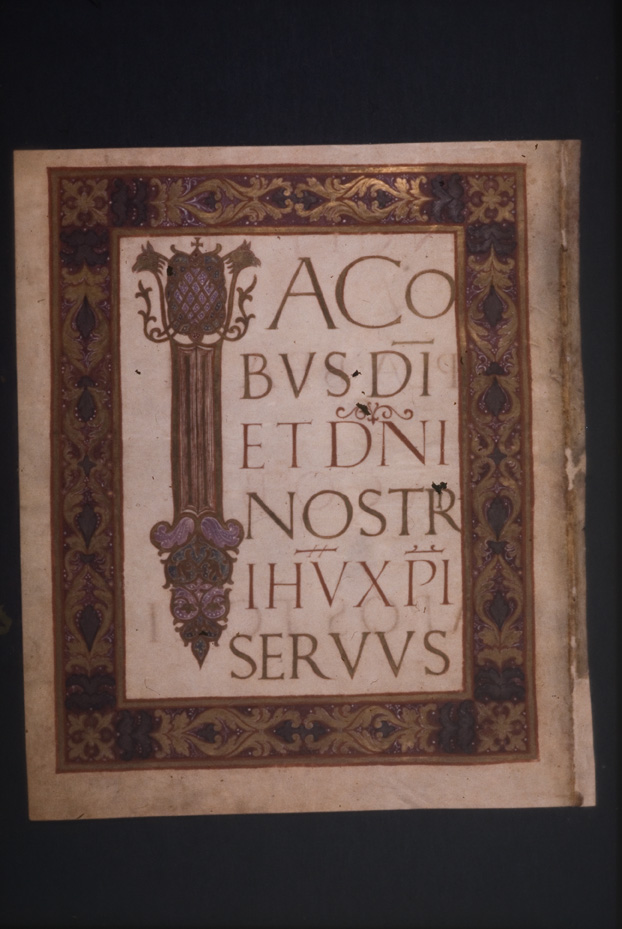 IACO
BVS·DI̅
ET D̅N̅I
NOSTR
IHV̅XP̅I
SERVVS